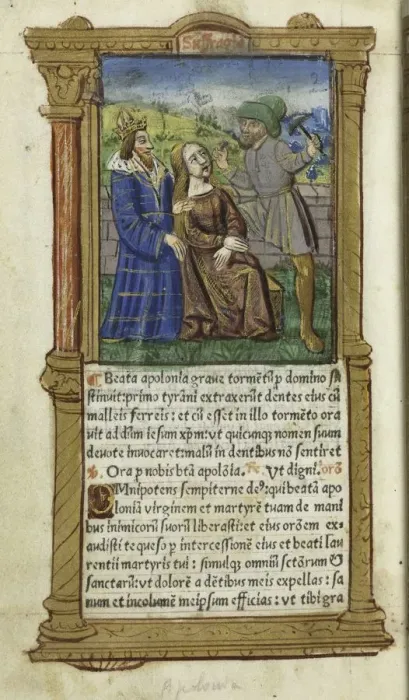 ¶ Beata apolonia graue tormētū p domino su
stinuit: primo tyrāni extraxerūt dentes eius cū
malleis ferreis: et cū esset in illo tormēto ora
uit ad dūm iesum xp̄m: vt quicunqz nomen suum
deuote inuocaret: malū in dentibus nō sentiret
℣. Ora p nobis btā apolōia. ℟. Vt digni. orō
OMnipotens sempiterne de⁹: qui beatā apo
loniā virginem et martyrē tuam de mani
bus inimicorū suorū liberasti: et eius orōem ex-
audisti te queso p intercessionē eius et beati lau
rentii martyris tui: simulqz omniū sctōrum &
sanctarū: vt dolorē a dētibus meis expellas: sa
num et incolumē meipsum efficias: vt tibi gra
Apolonia